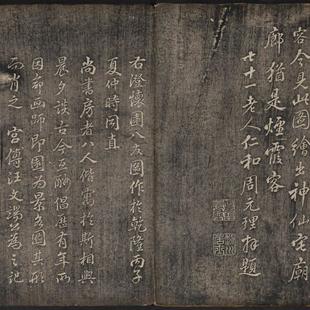 容今見此圖繪出神仙宅廟
廊猶是煙霞客
七十一老人仁和周元理拜題
右澄懷園八友圖作於乾隆丙子
夏仲時同直
尚書房者八人偕寓於斯相與
晨夕談古今互酬倡歷有年所
因命畫師即園為景各圖其形
而肖之 宮傅汪文端公為之記